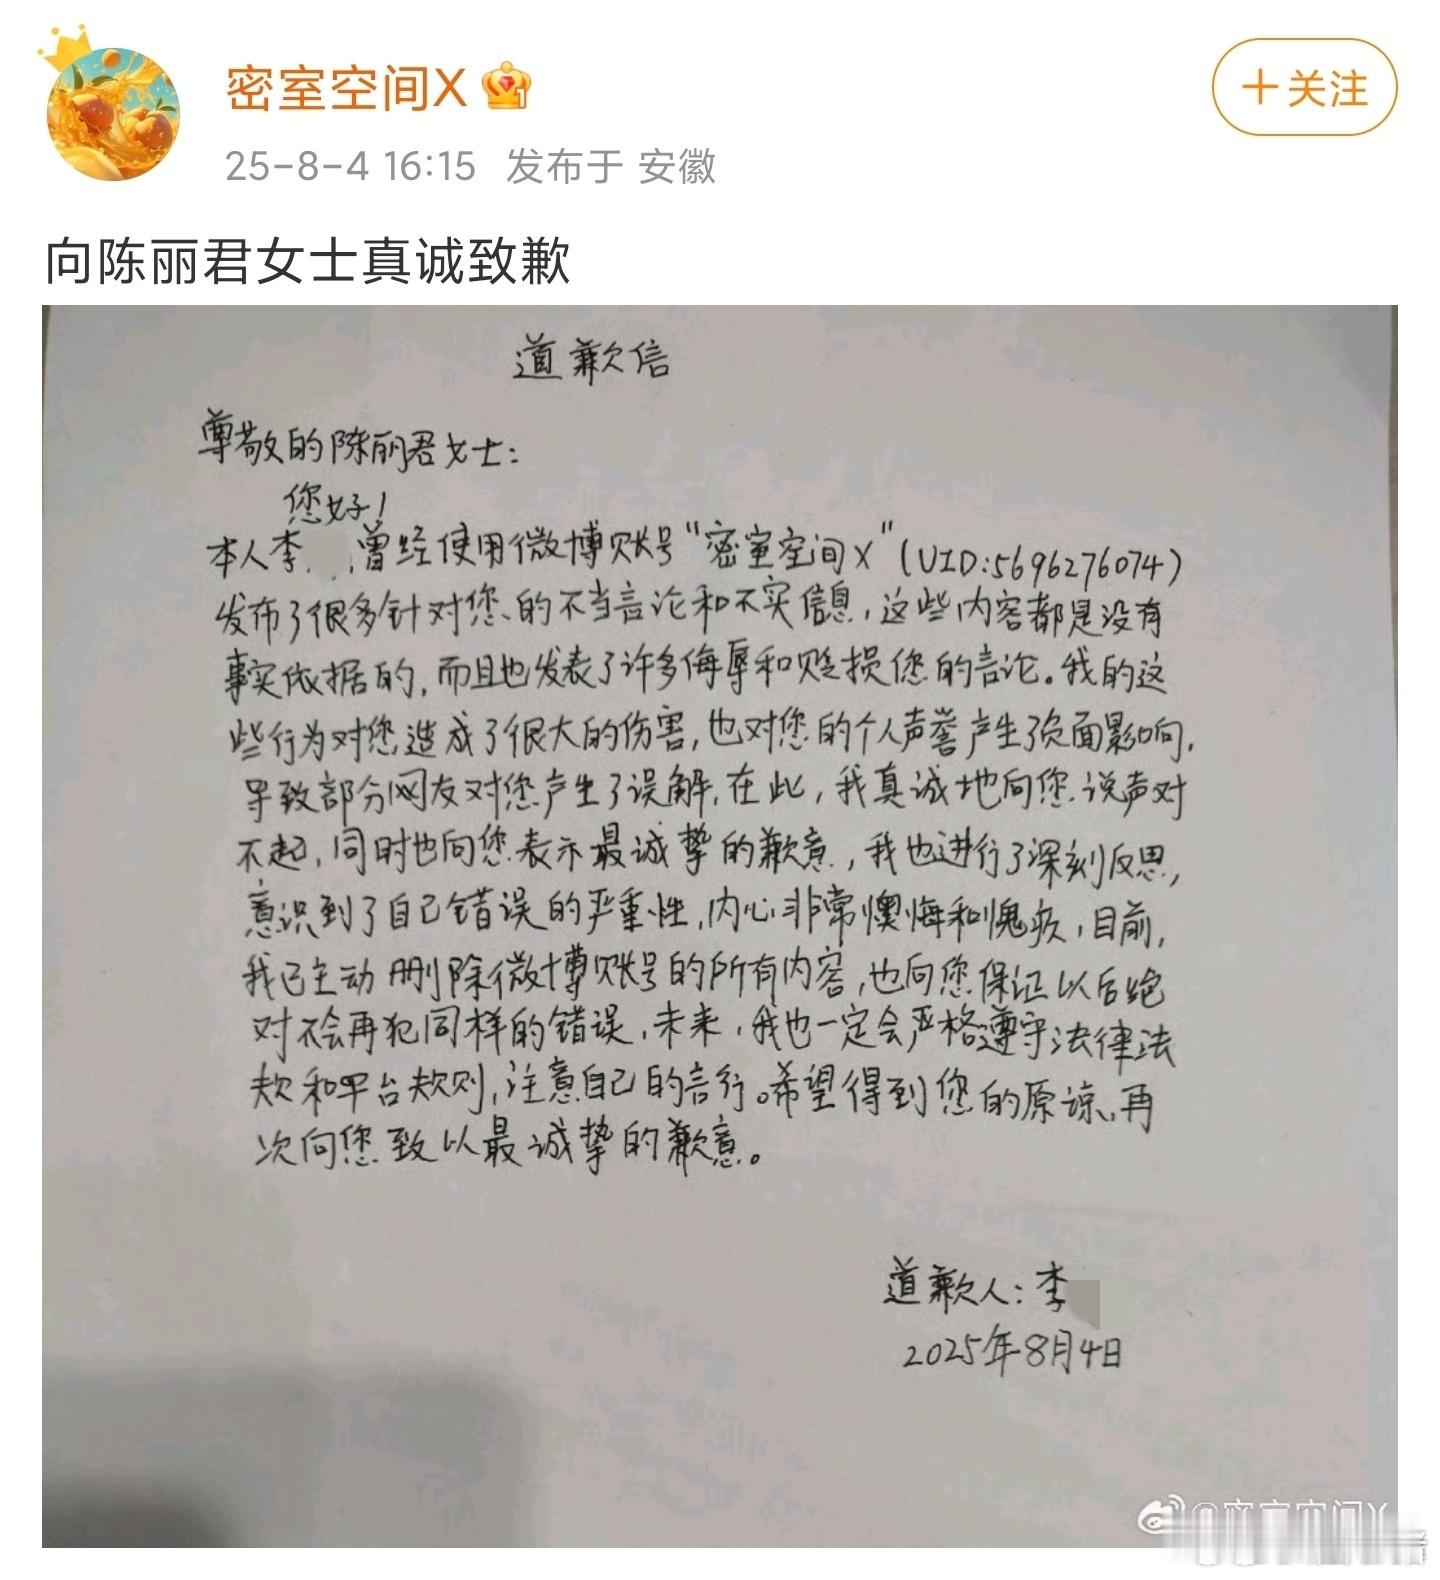 密室空间X
+关注
25-8-4 16:15 发布于 安徽
向陈丽君女士真诚致歉
道歉信
尊敬的陈丽君女士:
您好!
本人李 ,曾经使用微博账号“密室空间X”(UID:5696276074)
发布了很多针对您的不当言论和不实信息,这些内容都是没有
事实依据的,而且也发表了许多侮辱和贬损您的言论。我的这
些行为对您造成了很大的伤害,也对您的个人声誉产生了负面影响,
导致部分网友对您产生了误解,在此,我真诚地向您说声对
不起,同时也向您表示最诚挚的歉意,我也进行了深刻反思,
意识到了自己错误的严重性,内心非常懊悔和愧疚,目前,
我已主动删除微博账号的所有内容,也向您保证以后绝
对不会再犯同样的错误,未来,我也一定会严格遵守法律法
规和平台规则,注意自己的言行。希望得到您的原谅,再
次向您致以最诚挚的歉意。
道歉人:李
2025年8月4日
@密室空间X